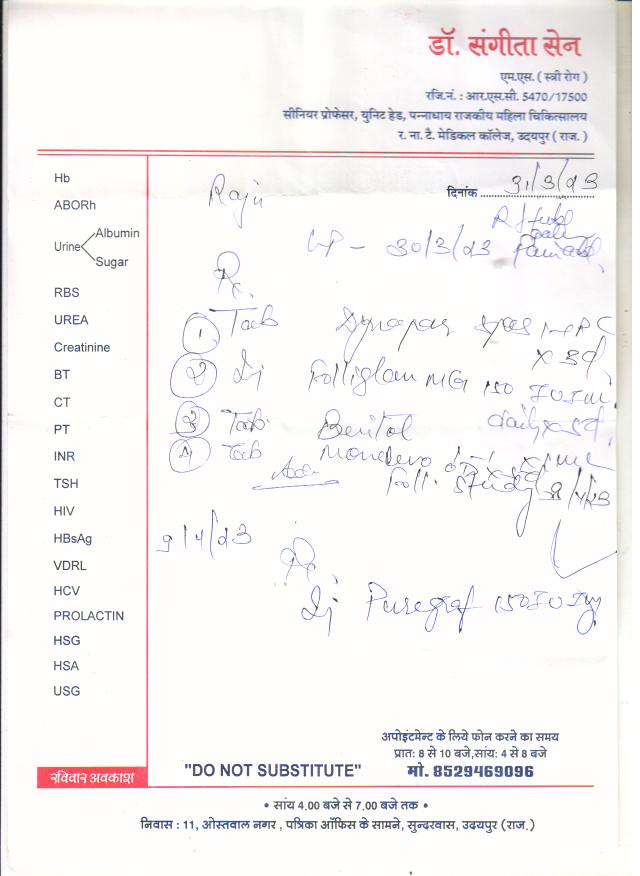 डॉ. संगीता सेन
एम.एस. ( स्त्री रोग )
रजि.नं. : आर.एस.सी. 5470/17500
सीनियर प्रोफेसर, युनिट हेड, पन्नाधाय राजकीय महिला चिकित्सालय
र. ना. टै. मेडिकल कॉलेज, उदयपुर ( राज. )
Hb
ABORh
Urine Albumin
Sugar
RBS
UREA
Creatinine
BT
CT
PT
INR
TSH
HIV
HBsAg
VDRL
HCV
PROLACTIN
HSG
HSA
USG
Raju
दिनांक 31/3/23
LMP - 30/3/23
Rx
1 Tab Dynapar
x 3d
2 Inj Folliglam MG 150 IU IM
daily x 5d
3 Tab.
4 Tab
Adv Foll. Study 8/4/23
9/4/23
Rx
Inj Puregraf 150 IU
रविवार अवकाश
"DO NOT SUBSTITUTE"
अपोइंटमेन्ट के लिये फोन करने का समय
प्रातः 8 से 10 बजे,सांय: 4 से 8 बजे
मो. 8529469096
• सांय 4.00 बजे से 7.00 बजे तक •
निवास : 11, ओस्तवाल नगर , पत्रिका ऑफिस के सामने, सुन्दरवास, उदयपुर (राज.)